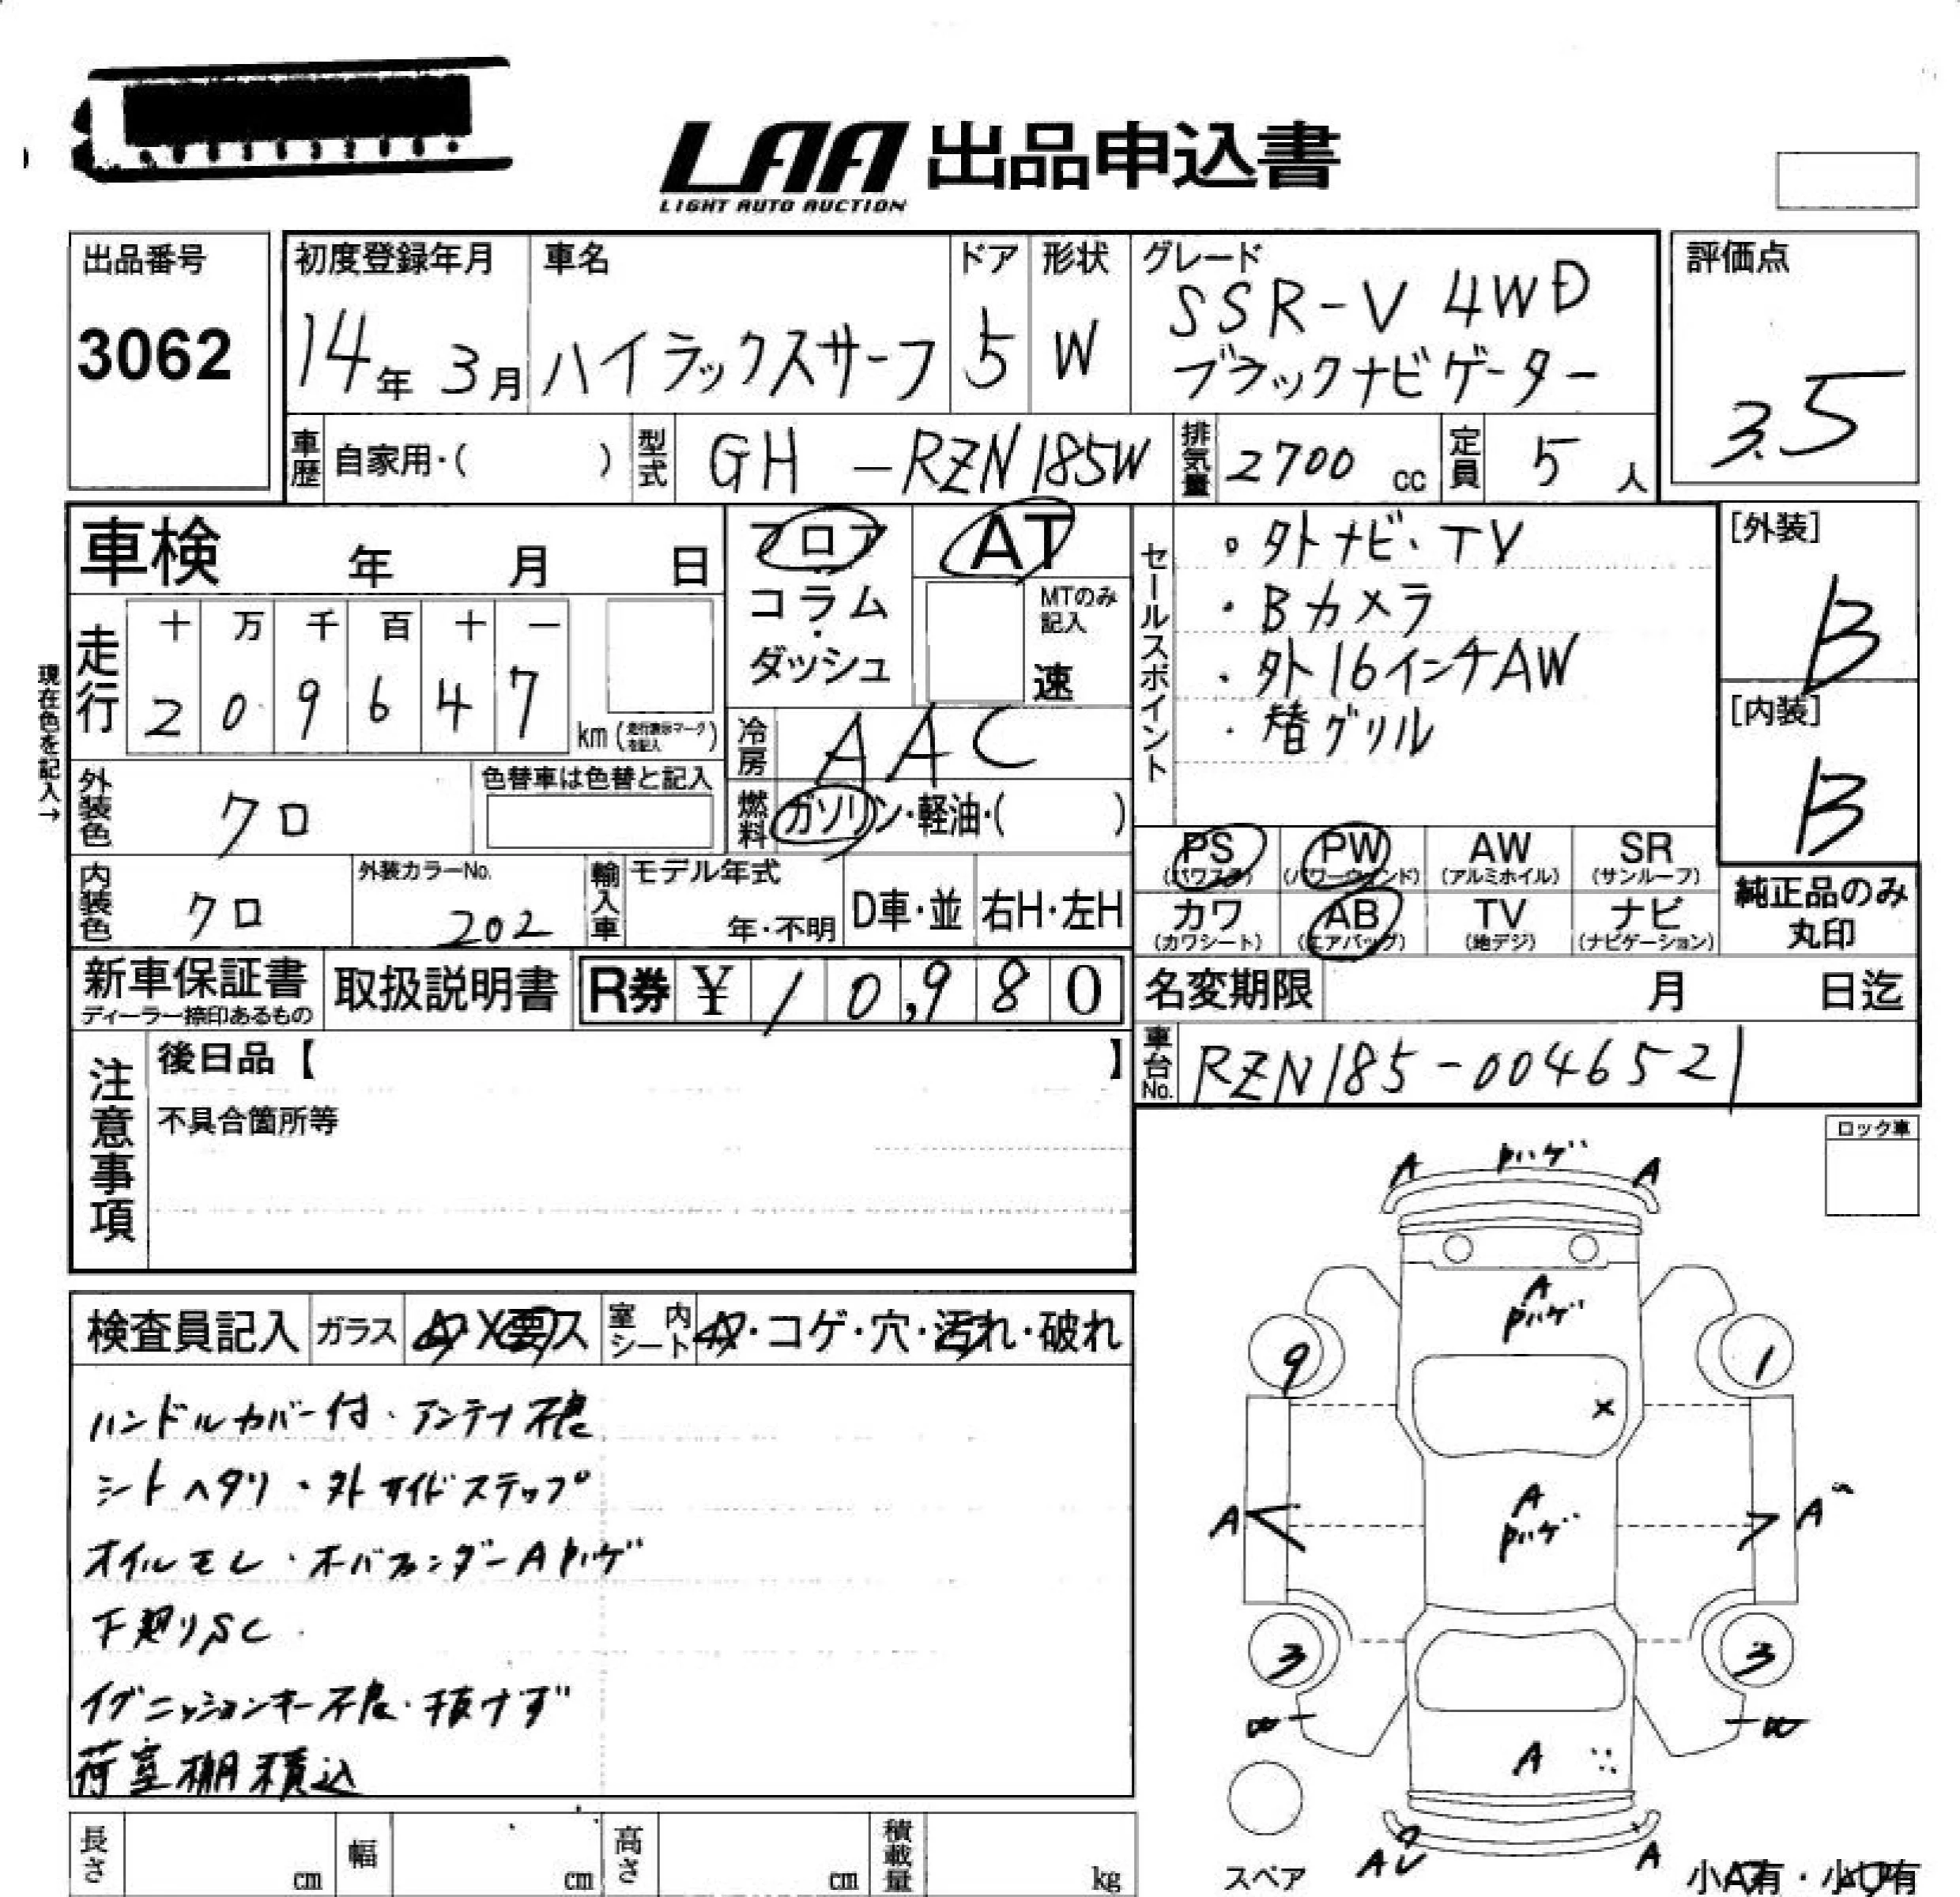 LAA 出品申込書
LIGHT AUTO AUCTION
出品番号
3062
初度登録年月
14年 3月
車名
ハイラックスサーフ
ドア
5
形状
W
グレード
SSR-V 4WD
ブラックナビゲーター
評価点
3.5
車歴 自家用・( )
型式 GH-RZN185W
排気量 2700 cc
定員 5 人
車検 年 月 日
フロア
コラム
・
ダッシュ
AT
MTのみ
記入
速
セールスポイント
・外ナビ・TV
・Bカメラ
・外16インチAW
・替グリル
[外装]
B
[内装]
B
現在色を記入→
走行
十 万 千 百 十 一
2 0 9 6 4 7
km (走行表示マークを記入)
冷房 AAC
外装色 クロ
色替車は色替と記入
燃料 ガソリン・軽油・( )
PS (パワステ)
PW (パワーウィンド)
AW (アルミホイル)
SR (サンルーフ)
内装色 クロ
外装カラーNo.
202
輸入車
モデル年式
年・不明
D車・並
右H・左H
カワ (カワシート)
AB (エアバッグ)
TV (地デジ)
ナビ (ナビゲーション)
純正品のみ
丸印
新車保証書
ディーラー捺印あるもの
取扱説明書
R券 ¥ 10,980
名変期限 月 日迄
車台No. RZN185-0046521
注意事項
後日品【 】
不具合箇所等
ロック車
検査員記入
ガラス
室内シート ・コゲ・穴・汚れ・破れ
ハンドルカバー付・アンテナ不良
シートヘタリ・外サイドステップ
オイルモレ・オーバーフェンダーAPハゲ
下廻りSC
イグニッションキー不良・抜けず
荷室棚積込
A Pハゲ A
A
Pハゲ
9 1
X
A
Pハゲ
A A
3 3
A
スペア
A A
長さ cm
幅 cm
高さ cm
積載量 kg